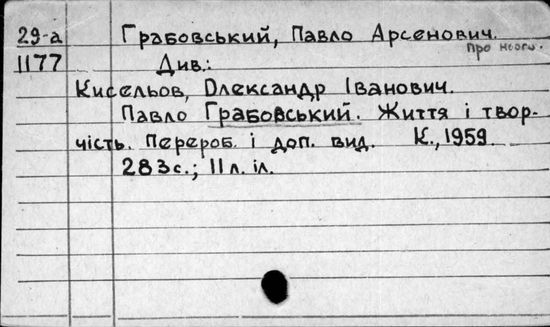 29-а Грабовський, Павло Арсенович.
про нього.
1177 Див.:
Кисельов, Олександр Іванович.
Павло Грабовський. Життя і твор-
чість. Перероб. і доп. вид. К., 1959.
283с.; 11 л. іл.